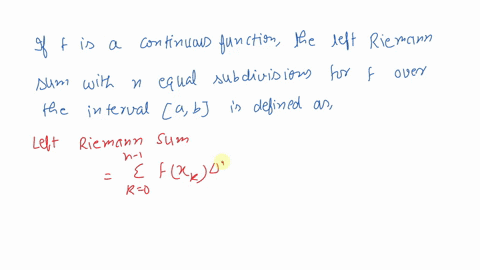 If f is a continuous function, the left Riemann
sum with n equal subdivisions for f over
the interval [a,b] is defined as,
Left Riemann Sum
n-1
= Σ f(x_k) Δ
k=0